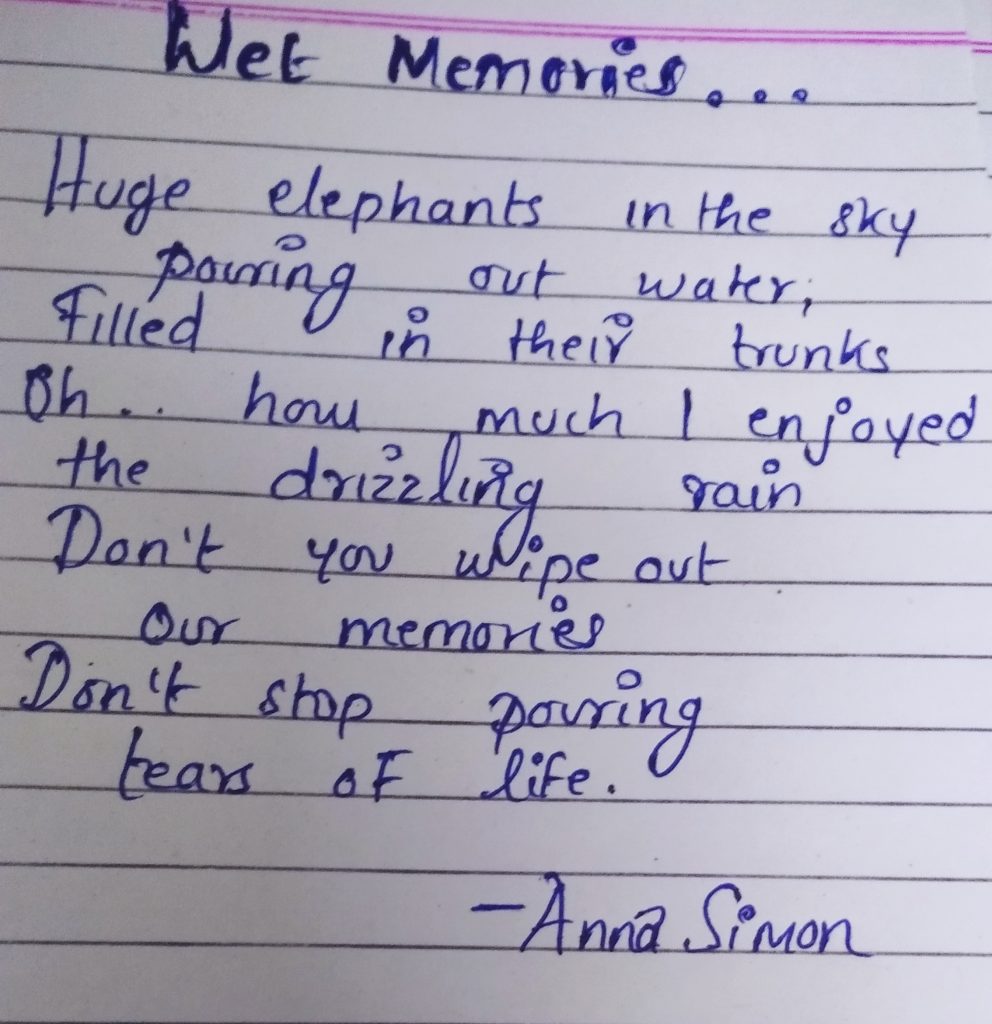 Wet Memories...
Huge elephants in the sky
pouring out water;
Filled in their trunks
Oh.. how much I enjoyed
the drizzling rain
Don't you wipe out
our memories
Don't stop pouring
tears of life.
-Anna Simon